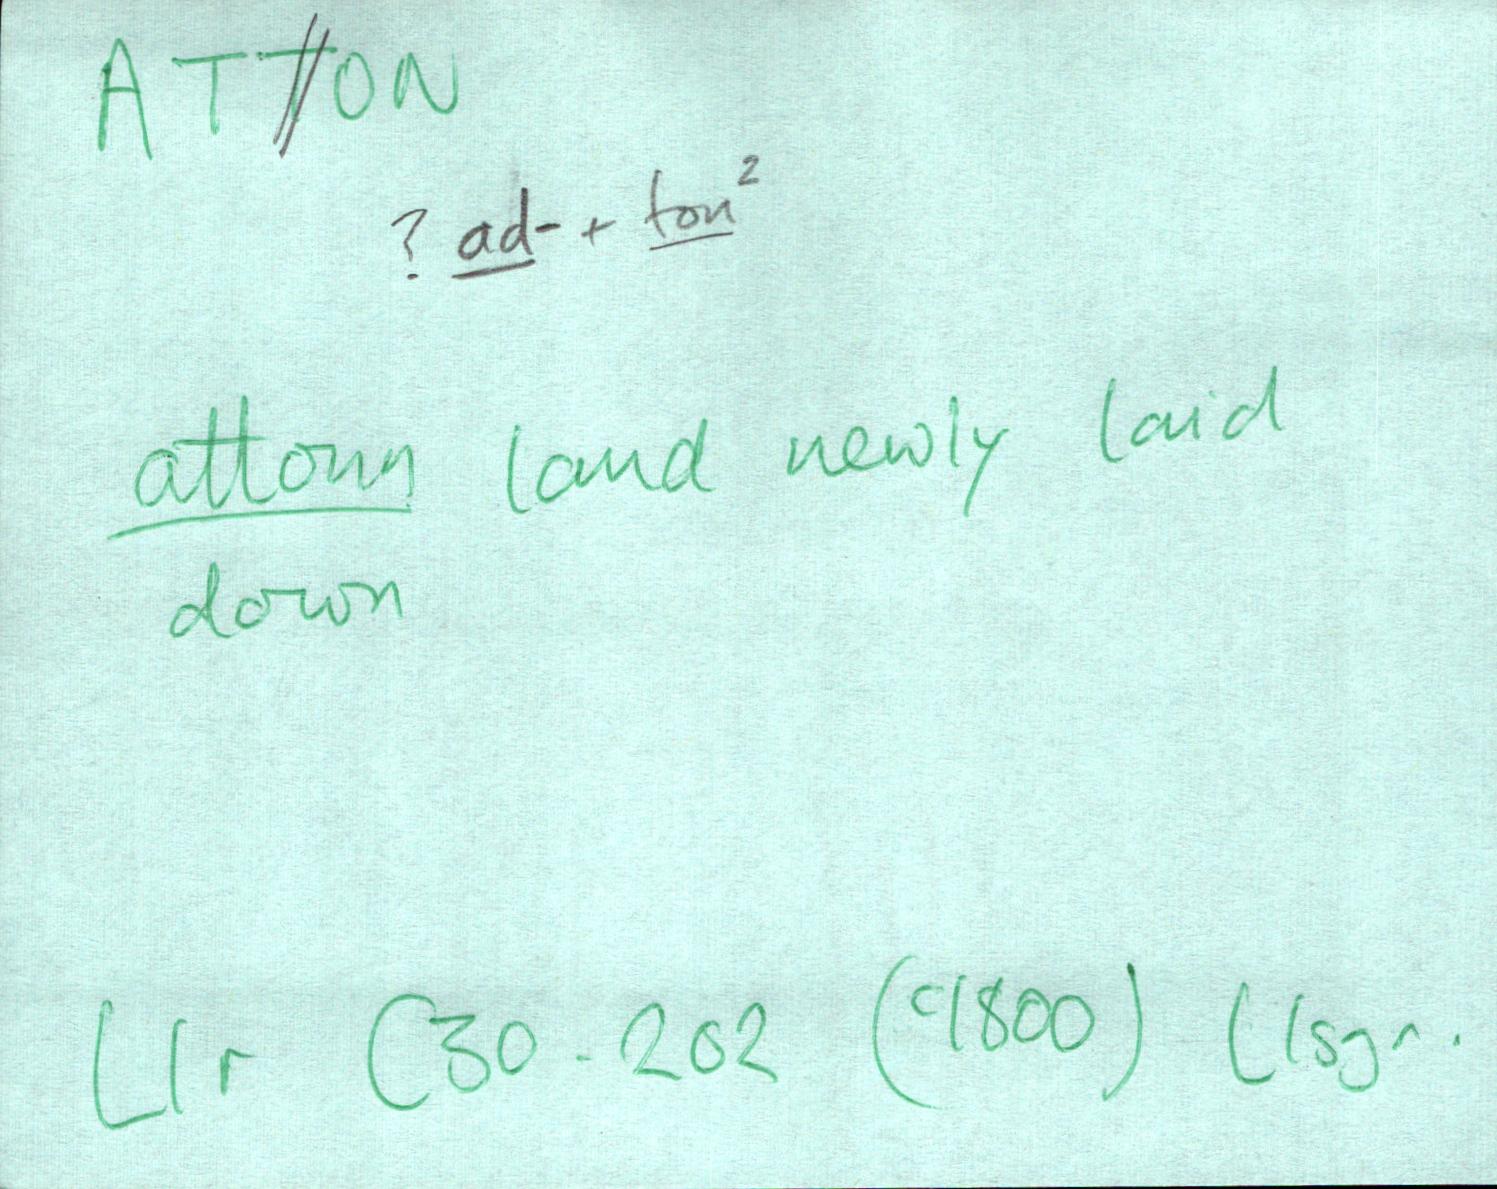 ATTON
? ad- + ton²
attonn land newly laid
down
Llr C30.202 (c1800) Llsgr.